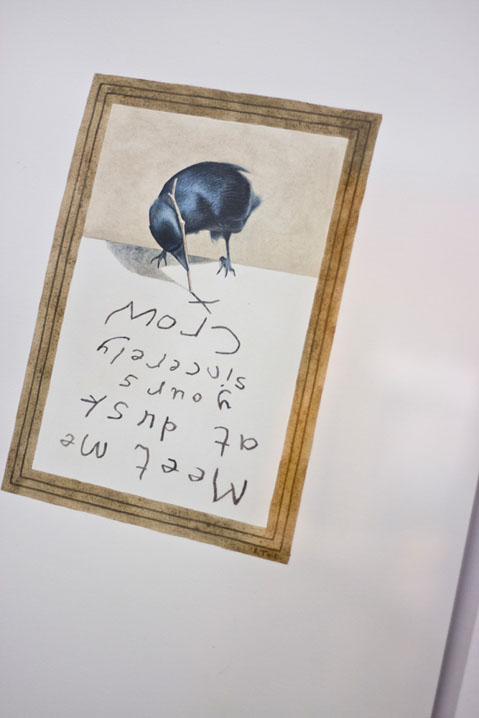 Meet me
at dusk
yours
sincerely
Crow
X